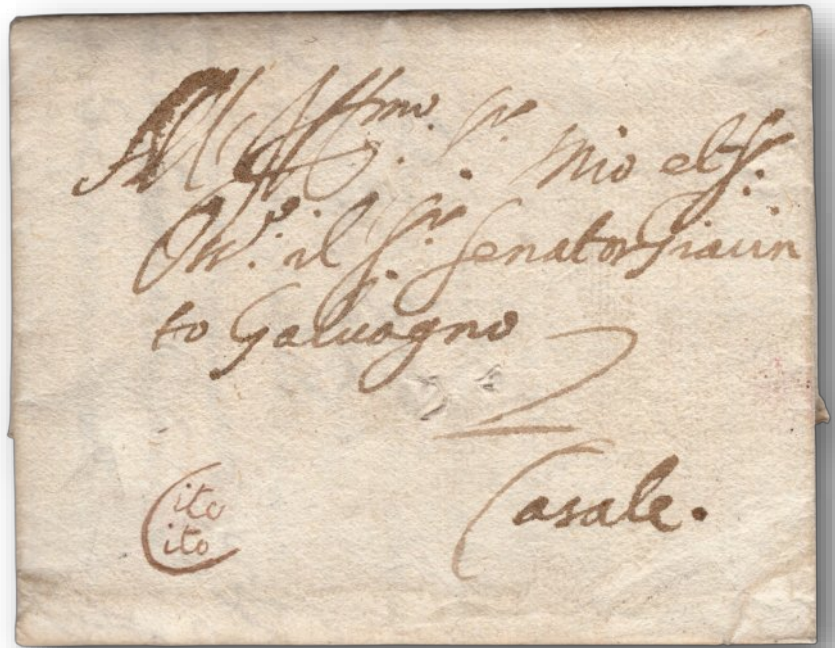 All Ill.mo S.r mio e l S.r
Oss.o il S.r Senator Giacin
to Galuagno
Casale.
Cito
Cito